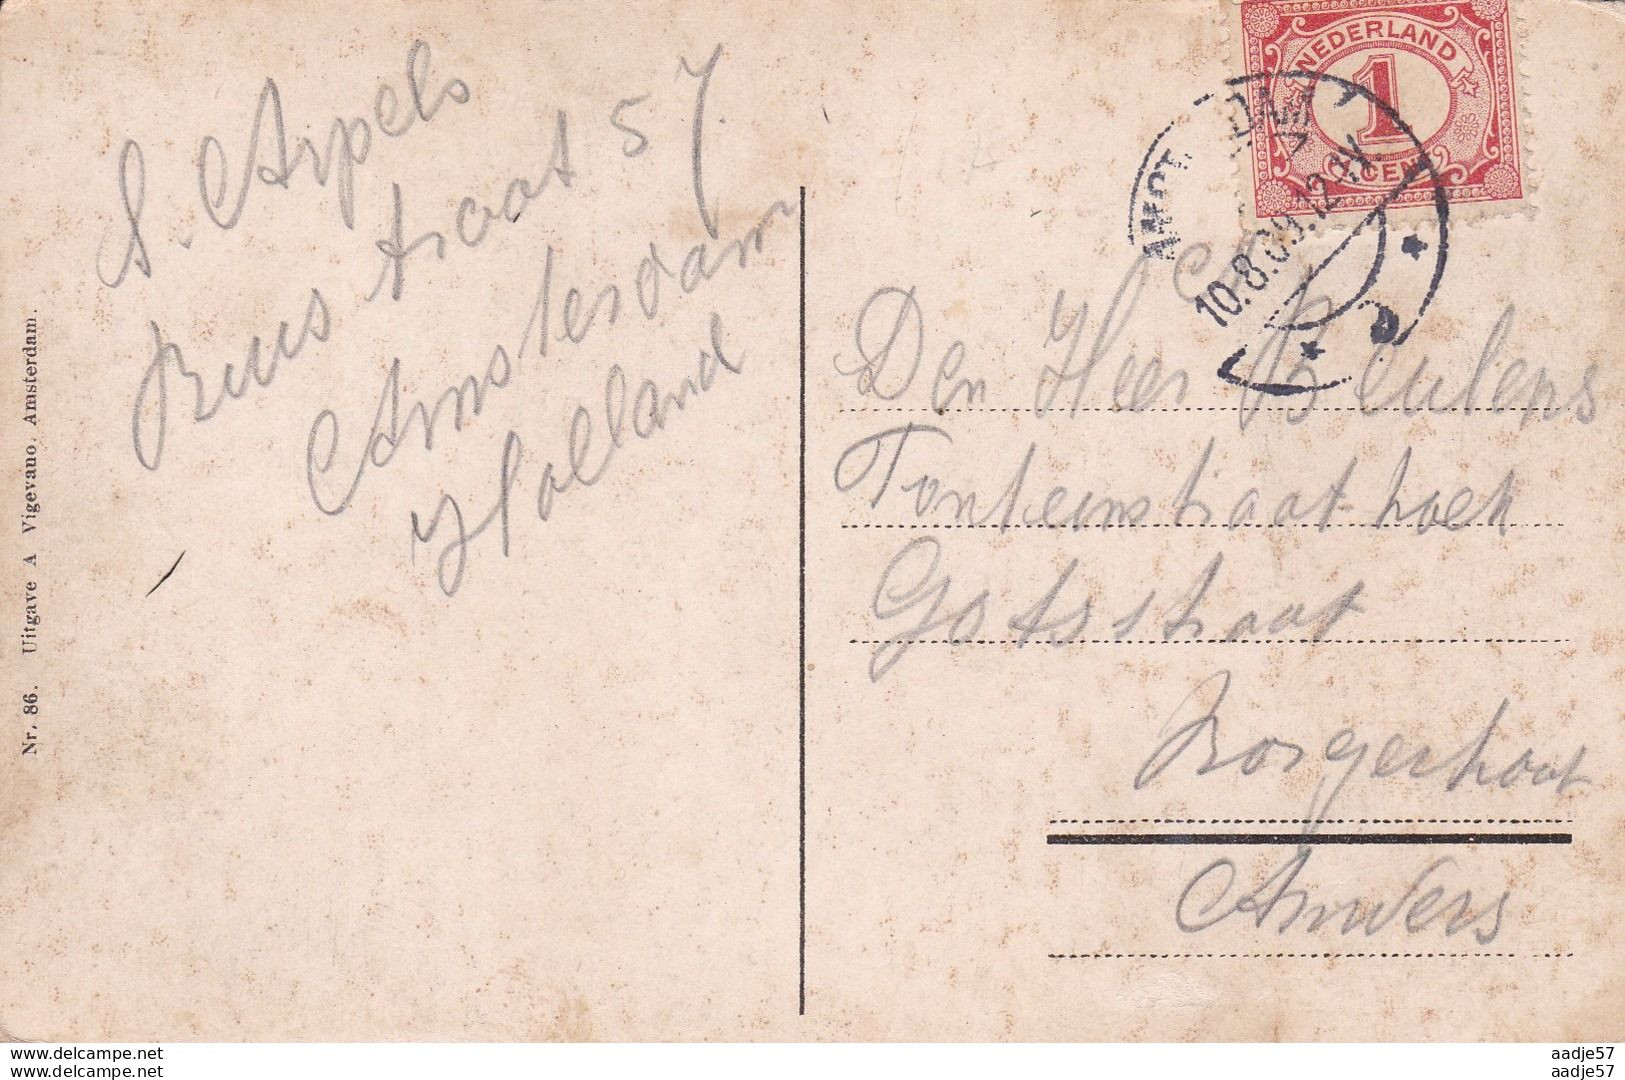 S. Arpels
straat 57.
Amsterdam
Holland
Nr. 86. Uitgave A Vigevano. Amsterdam.
NEDERLAND
1
CENT
AMST DAM
10.8.09.12-1V.
Den Heer Beulens
Fonteinstraat hoek
Gotsstraat
Borgerhout
Anvers
www.delcampe.net
www.delcampe.net
aadje57
aadje57